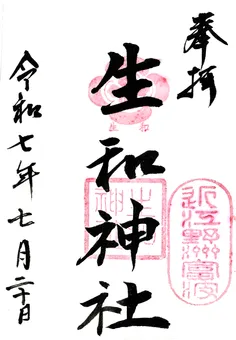 奉拝
生和神社
令和七年七月二十日